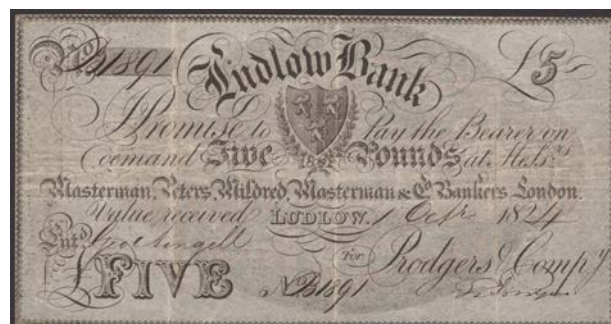 No B1891 Ludlow Bank £5
I Promise to Pay the Bearer on
Demand Five Pounds at Mess.rs
Masterman, Peters, Mildred, Masterman & Co. Bankers London.
Value received LUDLOW. 1 1824
Entd.
For Prodgers & Compy
£FIVE No B1891